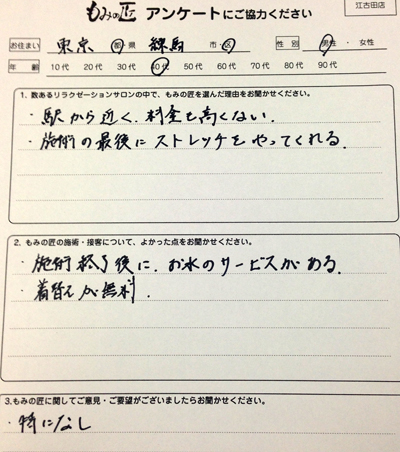 もみの匠 アンケートにご協力ください
江古田店
お住まい 東京 都・県 練馬 市・区 性別 男性・女性
年齢 10代 20代 30代 40代 50代 60代 70代 80代 90代
1. 数あるリラクゼーションサロンの中で、もみの匠を選んだ理由をお聞かせください。
・駅から近く、料金も高くない。
・施術の最後にストレッチをやってくれる。
2. もみの匠の施術・接客について、よかった点をお聞かせください。
・施術終了後に、お水のサービスがある。
・着替えが無料。
3.もみの匠に関してご意見・ご要望がございましたらお聞かせください。
・特になし